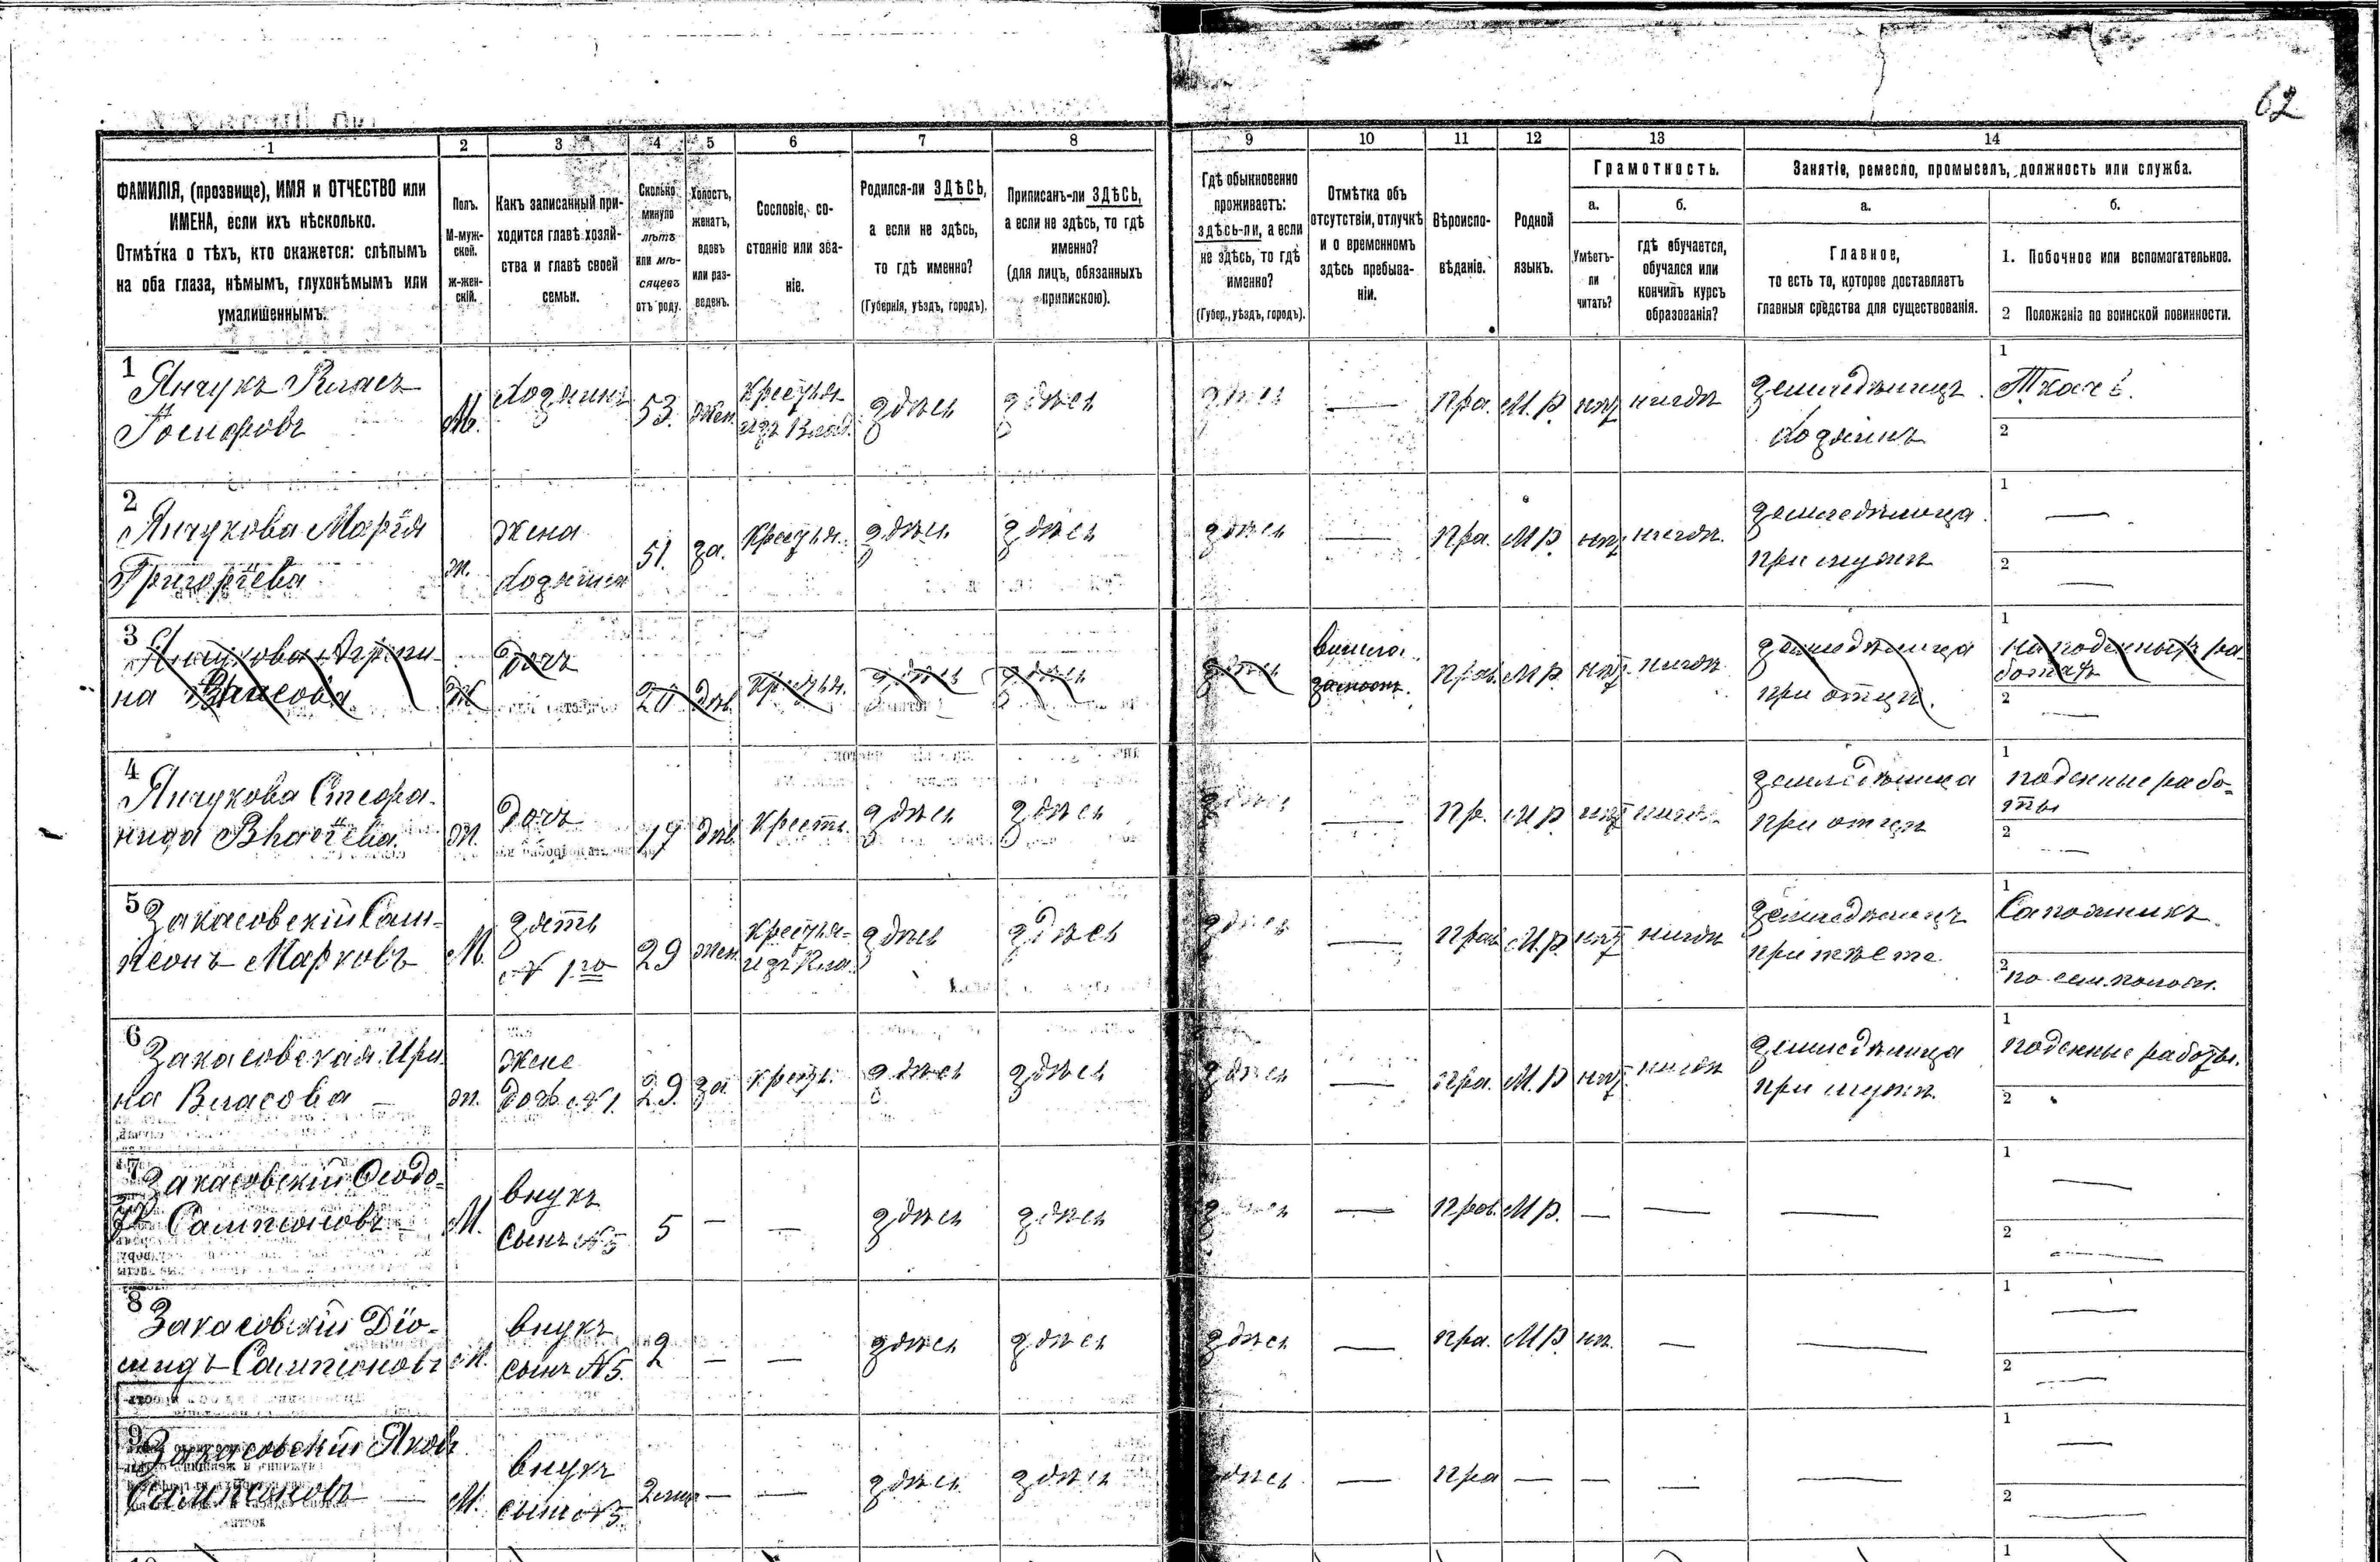 62
1 2 3 4 5 6 7 8 9 10 11 12 13 14
ФАМИЛІЯ, (прозвище), ИМЯ и ОТЧЕСТВО или
ИМЕНА, если ихъ нѣсколько.
Отмѣтка о тѣхъ, кто окажется: слѣпымъ
на оба глаза, нѣмымъ, глухонѣмымъ или
умалишеннымъ.
Полъ.
М-муж-
ской.
ж-жен-
скій.
Какъ записанный при-
ходится главѣ хозяй-
ства и главѣ своей
семьи.
Сколько
минуло
лѣтъ
или мѣ-
сяцевъ
отъ роду.
Холостъ,
женатъ,
вдовъ
или раз-
веденъ.
Сословіе, со-
стояніе или зва-
ніе.
Родился-ли ЗДѢСЬ,
а если не здѣсь,
то гдѣ именно?
(Губернія, уѣздъ, городъ).
Приписанъ-ли ЗДѢСЬ,
а если не здѣсь, то гдѣ
именно?
(для лицъ, обязанныхъ
припискою).
Гдѣ обыкновенно
проживаетъ:
здѣсь-ли, а если
не здѣсь, то гдѣ
именно?
(Губер., уѣздъ, городъ).
Отмѣтка объ
отсутствіи, отлучкѣ
и о временномъ
здѣсь пребыва-
ніи.
Вѣроиспо-
вѣданіе.
Родной
языкъ.
Грамотность.
а.
Умѣетъ-
ли
читать?
б.
гдѣ обучается,
обучался или
кончилъ курсъ
образованія?
Занятіе, ремесло, промыселъ, должность или служба.
а.
Главное,
то есть то, которое доставляетъ
главныя средства для существованія.
б.
1. Побочное или вспомогательное.
2 Положеніе по воинской повинности.
1
Янчукъ Власъ
М.
Хозяинъ
53.
жен.
Крестьян.
изъ Влад.
здѣсь
здѣсь
здѣсь
—
пра.
М.Р.
нѣт
нигдѣ
земледѣлецъ
Хозяинъ
1
Ткачъ.
2
2
Янчукова Марія
Григоріева
ж.
жена
Хозяина
51.
за.
Крестьян.
здѣсь
здѣсь
здѣсь
—
пра.
М.Р.
нѣт
нигдѣ.
земледѣлица
при мужѣ
1
—
2
—
3
Янчукова Агрипи-
на Власова
Ж
дочь
20
дѣв.
Крестьян.
здѣсь
здѣсь
здѣсь
прав.
М.Р.
нѣт.
нигдѣ
земледѣлица
при отцѣ.
1
на поденныхъ ра-
ботах
2
—
4
Янчукова Стефа-
нида
ж.
дочь
17
дѣв.
Крест.
здѣсь
здѣсь
здѣсь
—
пр.
М.Р.
нѣт
нигдѣ
при отцѣ
1
поденные рабо-
ты
2
—
5
Закасовскій Сам-
псонъ Марковъ
М.
зять
№ 1го
29
жен.
Крестья-
изъ Вла.
здѣсь
здѣсь
здѣсь
—
прав.
М.Р.
нѣт
нигдѣ
земледѣлецъ
при тестѣ
1
Сапожникъ.
2
6
Закасовская Ири-
на Власова —
ж.
жена
дочь №1.
29.
за
крест.
здѣсь
здѣсь
здѣсь
—
пра.
М.Р
нѣт.
нигдѣ
земледѣлица
при мужѣ.
1
поденные работы.
2
7
Закасовскій Феодо-
Сампсоновъ —
М.
внукъ
сынъ №5
5
—
—
здѣсь
здѣсь
здѣсь
—
прав.
М.Р.
—
—
—
1
—
2
—
8
Закасовскій Діо-
мидъ Сампсоновъ
М.
внукъ
сынъ №5.
2
—
—
здѣсь
здѣсь
здѣсь
—
пра.
М.Р.
—
—
1
—
2
—
9
Закасовскій Яковъ
Сампсоновъ —
М.
внукъ
сынъ №5.
2 мѣс
—
—
здѣсь
здѣсь
здѣсь
—
пра
—
—
—
—
1
—
2
—
10
1